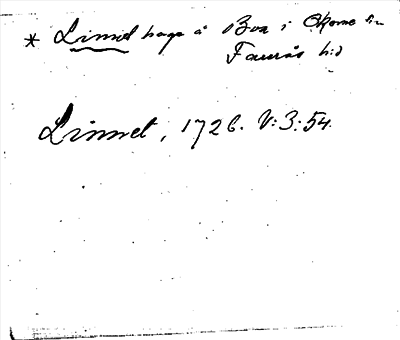 * Linnet hage å Boa i Okome sn
Faurås hd
Linnet, 1726. V:3:54.